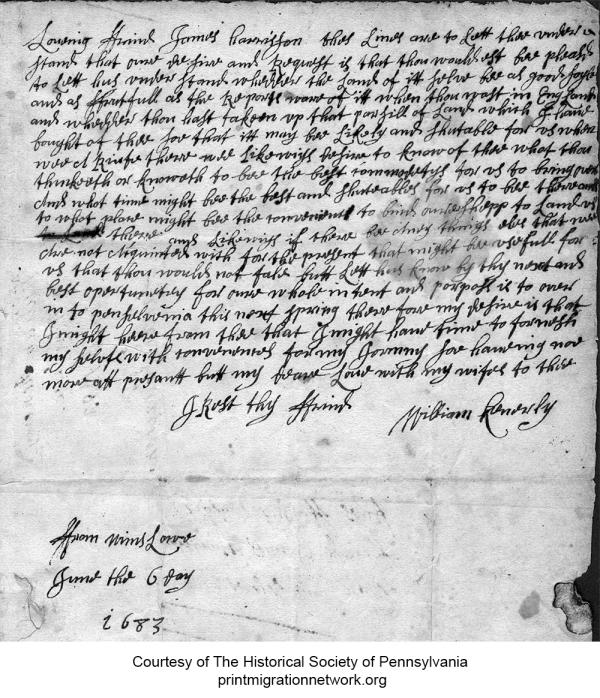 Loveing ffriend James harrison thes Lines are to Lett thee under
stand that oure desire and Request is that thou wouldest bee pleased
to Lett hus under stand whether the Land of itt selve bee as good
and as ffrutfull as the Report ware of itt when thou wast in England
and whether thou hast taken up that parsill of Land which I have
bought of thee soe that itt may bee Likely and shutable for us when
wee Arive there wee Likewise desire to know of thee what thou
thinketh or knoweth to bee the best for us to bring over
And what time might bee the best and for us to bee there and
to what place might bee the convenient to bind oure shepp to Land us
there and Likewise if there bee Aney things eles that wee
Are not Aquinted with for the present that might bee usefull for
us that thou would not faile butt Lett hus know by thy next and
best opertunety for oure whole intent and porpos is to over
in to penselvenia this next spring there fore my desire is that
I might heere from thee that I might have time to fornesh
my selve with conveniences for my Jorniny soe haveing noe
more att presantt but my deare Love with my wifes to thee
I Rest thy ffriend
William Kenerly
ffrom wins Lowe
June the 6 day
1683
Courtesy of The Historical Society of Pennsylvania
printmigrationnetwork.org